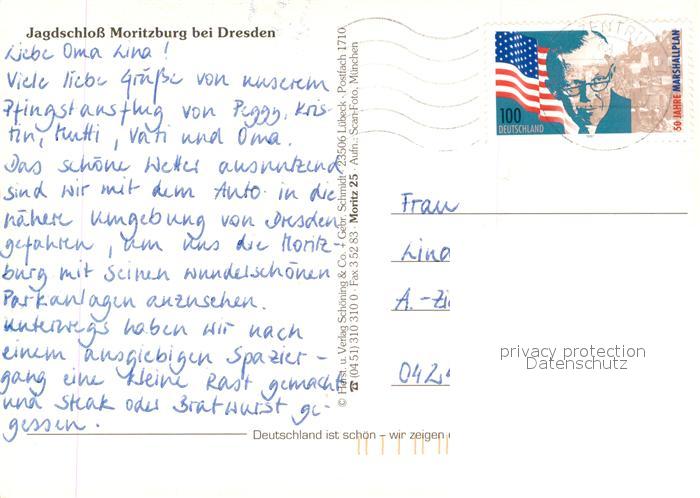 Jagdschloß Moritzburg bei Dresden
Liebe Oma Lina !
Viele liebe Grüße von unserem
Pfingstausflug von Peggy, Kris-
tin, Mutti, Vati und Oma.
Das schöne Wetter ausnutzend
sind wir mit dem Auto in die
nähere Umgebung von Dresden
gefahren, um uns die Moritz-
burg mit seinen wunderschönen
Parkanlagen anzusehen.
Unterwegs haben wir nach
einem ausgiebigen Spazier-
gang eine kleine Rast gemacht
und Steak oder Bratwurst ge-
gessen.
Deutschland ist schön – wir zeigen
© Horst. u. Verlag Schöning & Co. + Gebr. Schmidt · 23506 Lübeck · Postfach 1710
☎ (04 51) 310 310 0 · Fax 3 52 83 · Moritz 25 · Aufn.: Scan-Foto, München
100
DEUTSCHLAND
50 JAHRE MARSHALLPLAN
Frau
Lina
A.-Zi
042
privacy protection
Datenschutz